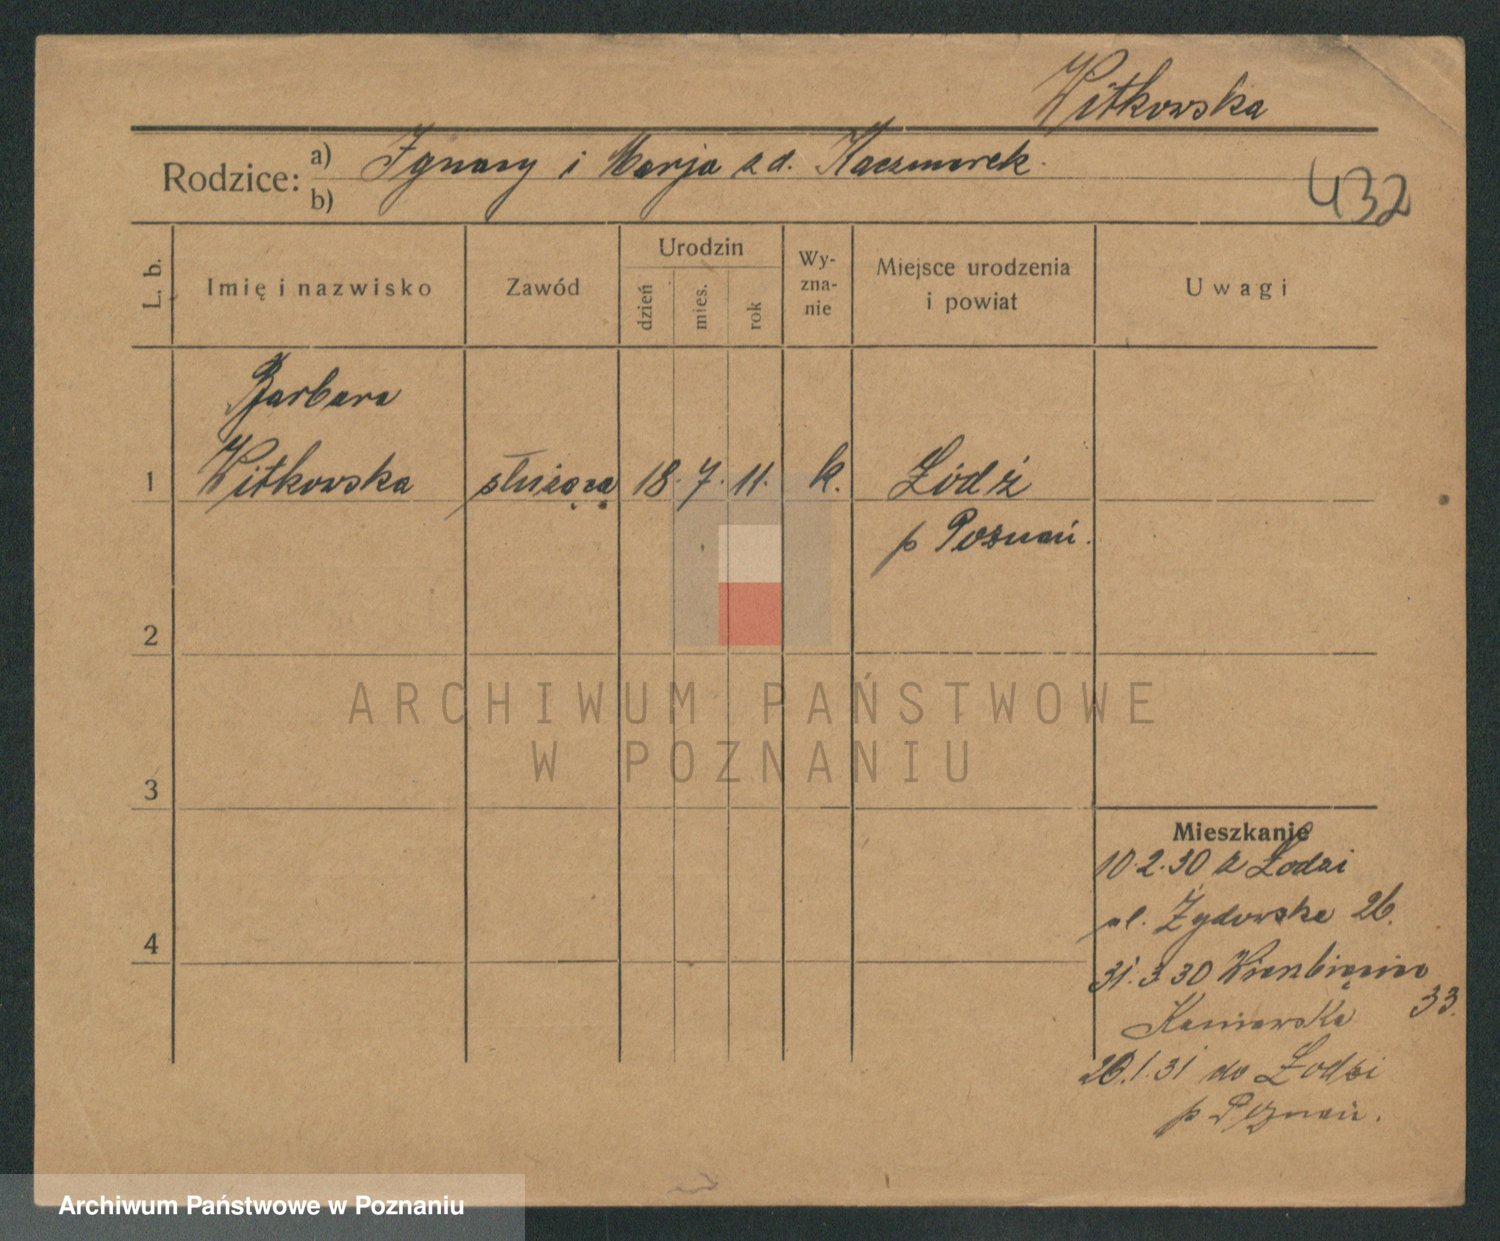 Witkowska
Rodzice: a) Ignacy i Marja z d. Kaczmarek.
b)
432
L. b.
Imię i nazwisko
Zawód
Urodzin
dzień
mies.
rok
Wy-
zna-
nie
Miejsce urodzenia
i powiat
Uwagi
Barbara
1 Witkowska służąca 18. 7. 11. k. Łódź
p Poznań.
2
ARCHIWUM PAŃSTWOWE
W POZNANIU
3
Mieszkanie
10.2.30 z Łodzi
ul. Żydowska 26.
4
31.3.30 Wierzbięcice
33.
Kaniewska
26.1.31 do Łodzi
p Poznań.
Archiwum Państwowe w Poznaniu